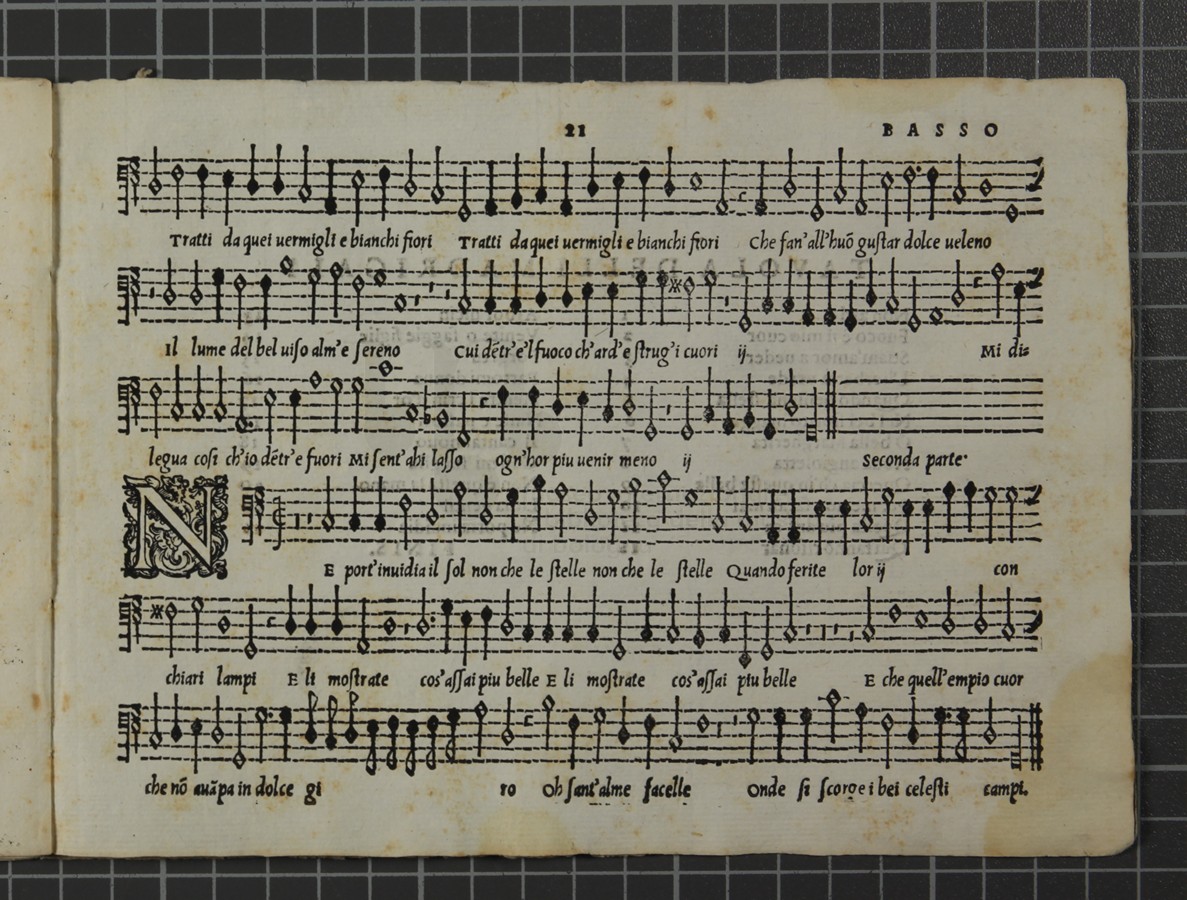 21 BASSO
Tratti da quei uermigli e bianchi fiori Tratti da quei uermigli e bianchi fiori Che fan'all'huō guſtar dolce ueleno
Il lume del bel uiſo alm'e ſereno Cui dētr'e'l fuoco ch'ard'e ſtrug'i cuori ij Mi diſ
legua coſi ch'io dētr'e fuori Mi ſent'ahi laſſo ogn'hor piu uenir meno ij Seconda parte.
N
E port'inuidia il ſol non che le ſtelle non che le ſtelle Quando ferite lor ij con
chiari lampi E li moſtrate coſ'aſſai piu belle E li moſtrate coſ'aſſai piu belle E che quell'empio cuor
che nō auāpa in dolce gi ro Oh ſant'alme facelle Onde ſi ſcorge i bei celeſti campi.